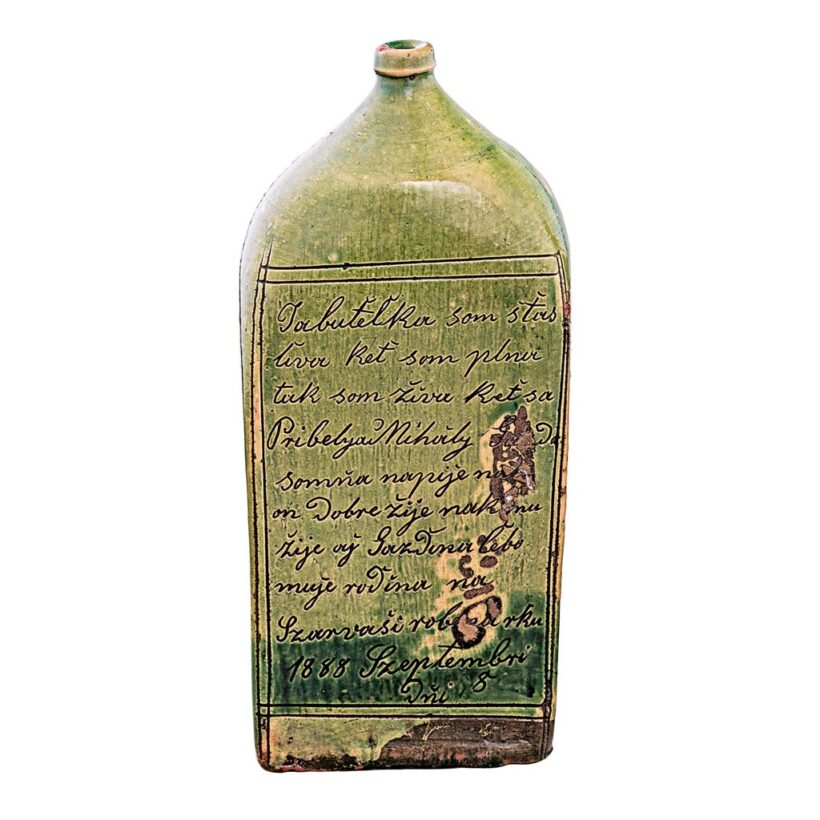 Ja butělka som sťas
liva keť som plna
tak som živa keť sa
Pribelya Mihály
somňa napije
on dobre žije nak mu
žije aj Gazďina lebo
muǰe roďina na
Szarvaši rob za rku
1888 Szeptembri
Dňi 8